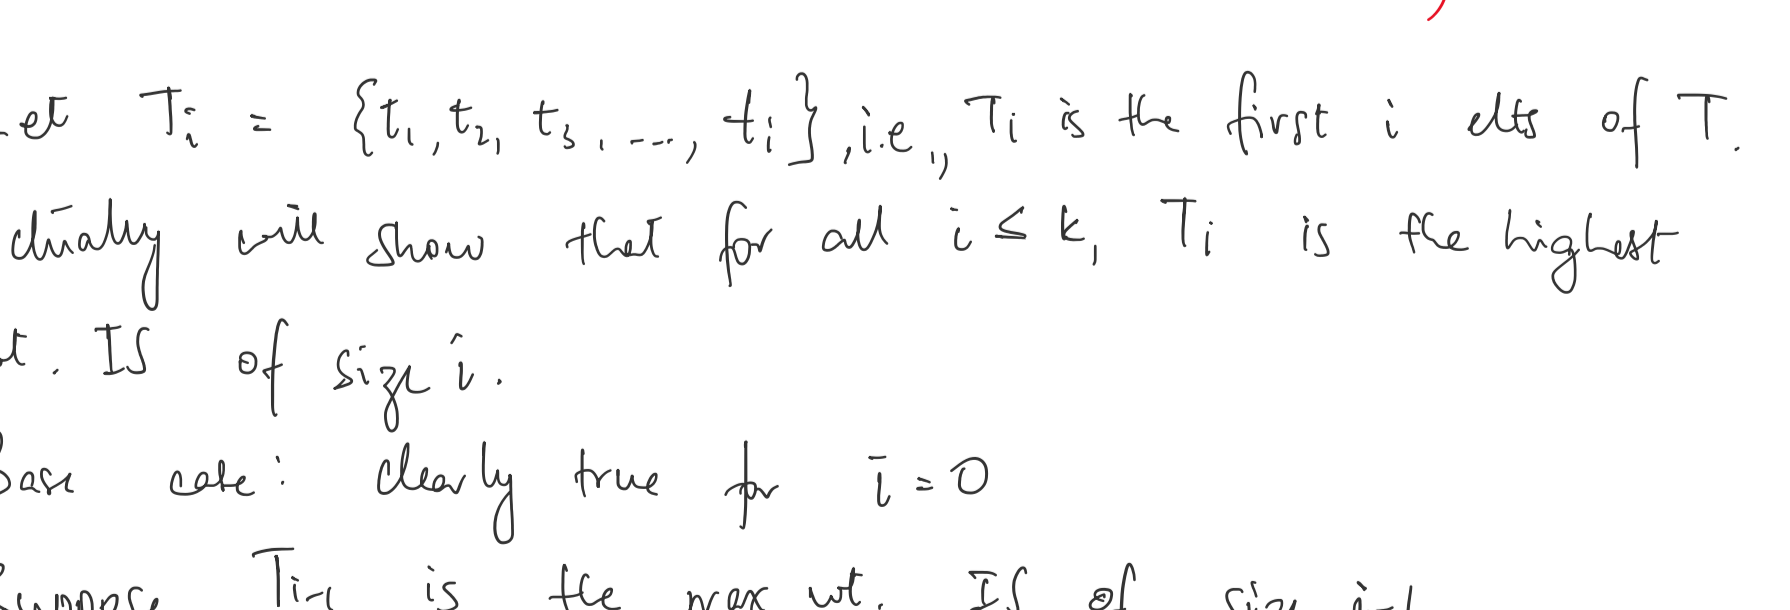 Let Tᵢ = {t₁, t₂, t₃, ..., tᵢ}, i.e., Tᵢ is the first i elts of T.
ctually will show that for all i ≤ k, Tᵢ is the highest
t. IS of size i.
Base case: clearly true for i = 0
Suppose Tᵢ₋₁ is the max wt. IS of size i-1